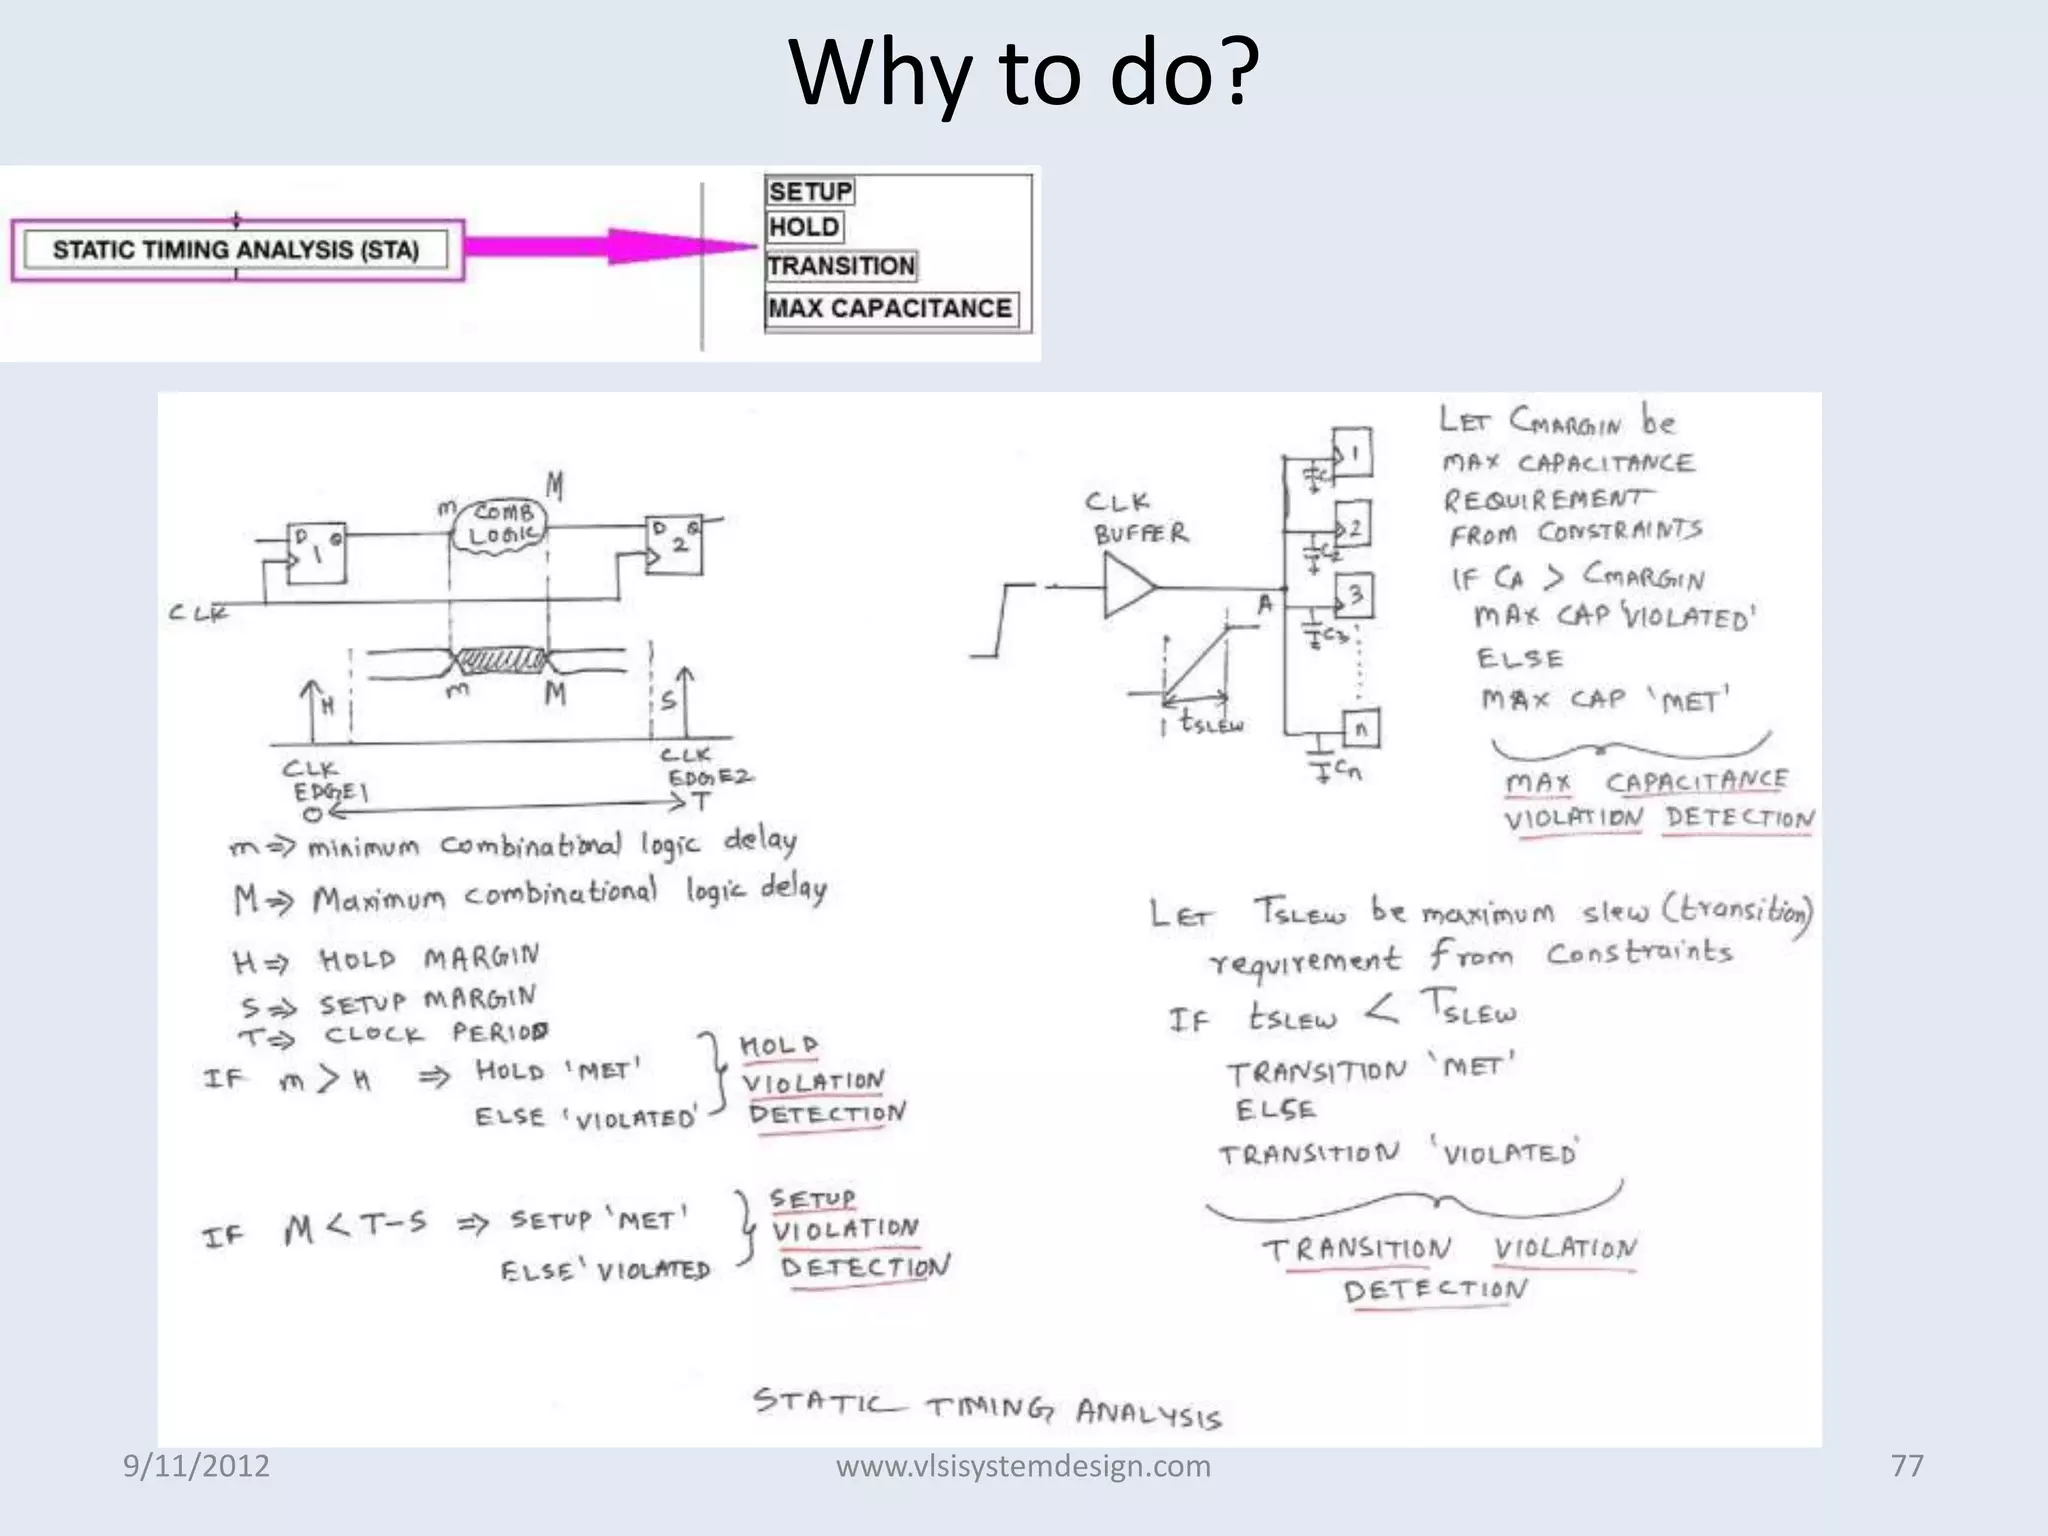 Why to do?
STATIC TIMING ANALYSIS (STA)
SETUP
HOLD
TRANSITION
MAX CAPACITANCE
m
M
COMB
LOGIC
D Q
1
D Q
2
CLK
m
M
H
S
CLK
EDGE1
CLK
EDGE2
0
T
m ⇒ minimum combinational logic delay
M ⇒ Maximum combinational logic delay
H ⇒ HOLD MARGIN
S ⇒ SETUP MARGIN
T ⇒ CLOCK PERIOD
IF m > H ⇒ HOLD 'MET'
ELSE 'VIOLATED'
HOLD
VIOLATION
DETECTION
IF M < T-S ⇒ SETUP 'MET'
ELSE 'VIOLATED
SETUP
VIOLATION
DETECTION
CLK
BUFFER
A
tSLEW
1
2
C2
3
C3
n
Cn
LET CMARGIN be
MAX CAPACITANCE
REQUIREMENT
FROM CONSTRAINTS
IF CA > CMARGIN
MAX CAP 'VIOLATED'
ELSE
MAX CAP 'MET'
MAX CAPACITANCE
VIOLATION DETECTION
LET TSLEW be maximum slew (transition)
requirement from constraints
IF tSLEW < TSLEW
TRANSITION 'MET'
ELSE
TRANSITION 'VIOLATED'
TRANSITION VIOLATION
DETECTION
STATIC TIMING ANALYSIS
9/11/2012
www.vlsisystemdesign.com
77